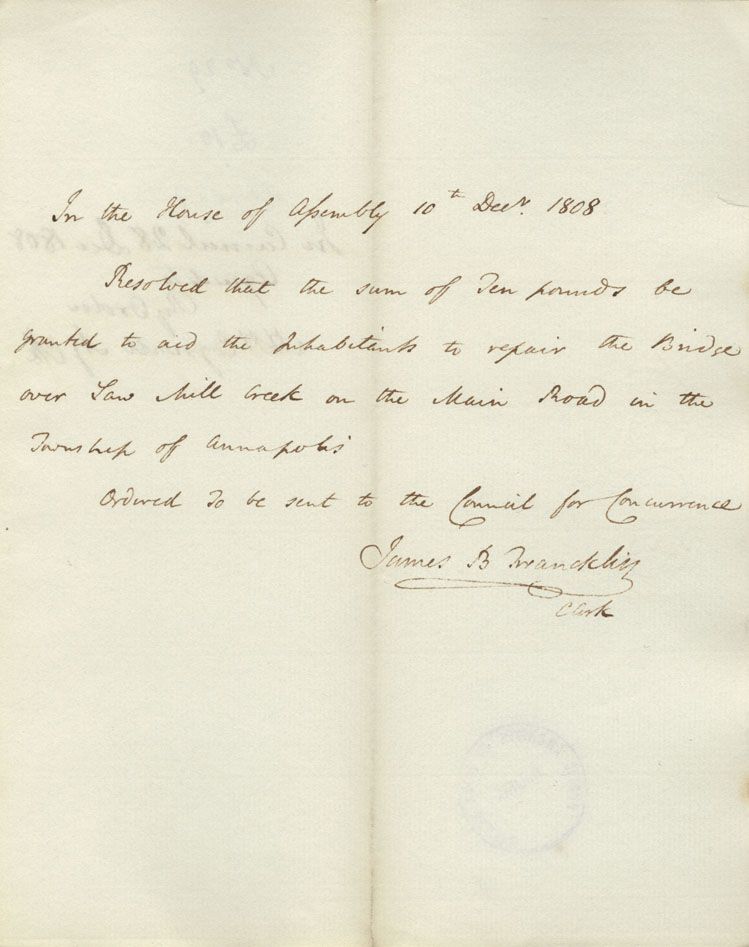 In the House of Assembly 10th Decr. 1808
Resolved that the sum of Ten pounds be
granted to aid the Inhabitants to repair the Bridge
over Saw Mill Creek on the Main Road in the
Township of Annapolis
Ordered To be sent to the Council for Concurrence
James B Franklin
Clerk
In Council 28 Dec 1808